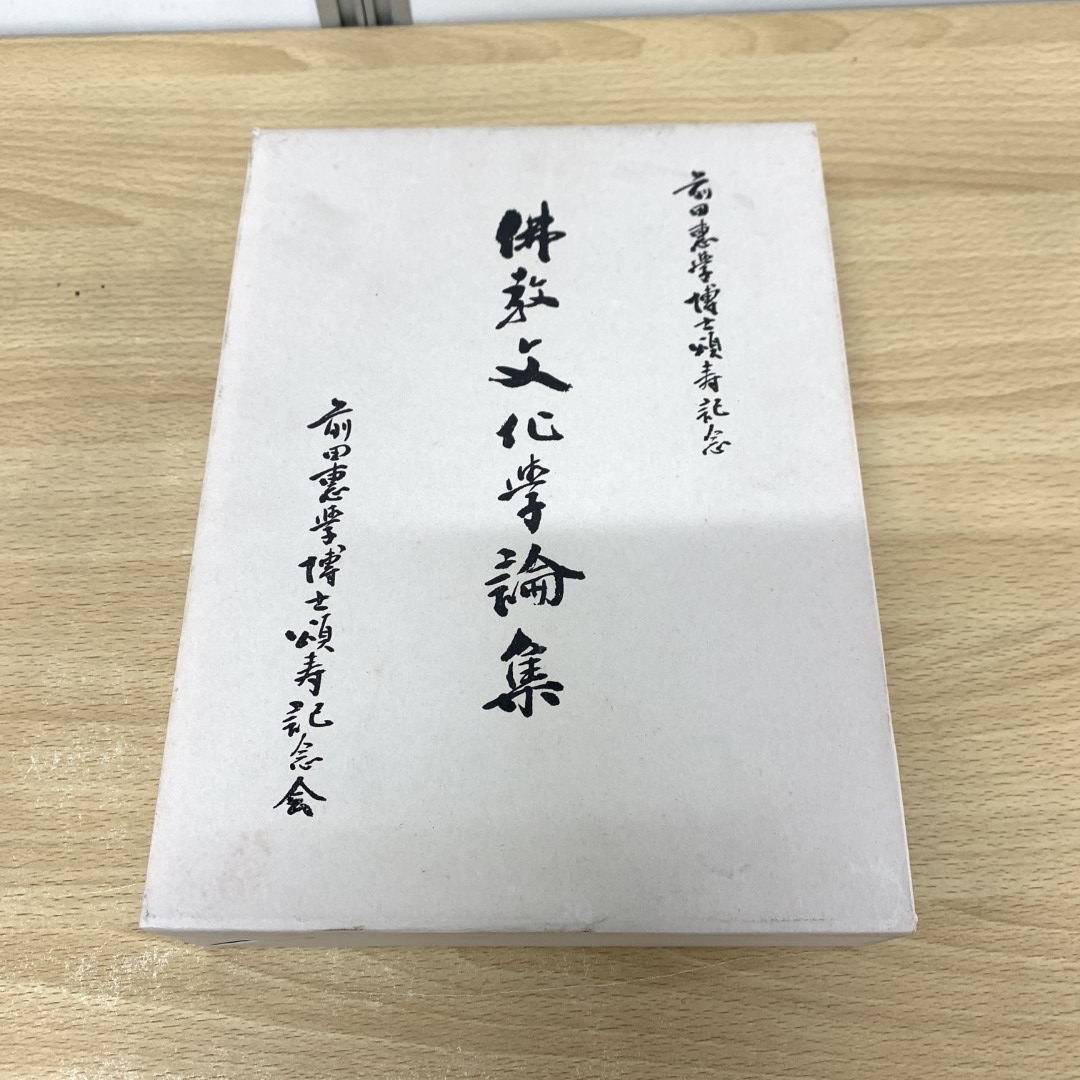 前田惠學博士頌寿記念
佛教文化学論集
前田惠學博士頌寿記念会